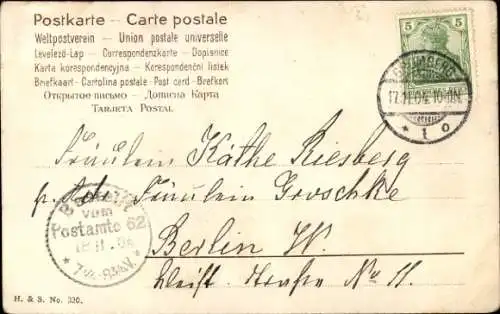 Postkarte - Carte postale
Weltpostverein - Union postale universelle
Levelező-Lap - Correspondenzkarte - Dopisnice
Karta korespondencyjna - Korespondenční lístek
Briefkaart - Cartolina postale - Post card - Brefkort
Открытое письмо - Дописна Карта
Tarjeta Postal
5 5
17.11.04. 10-11N.
* 1 o
Fräulein Käthe Riesberg
p. Adr. Fräulein Groschke
vom
Postamte 62
Berlin W.
Kleist-Straße No 11.
H. & S. No. 320.